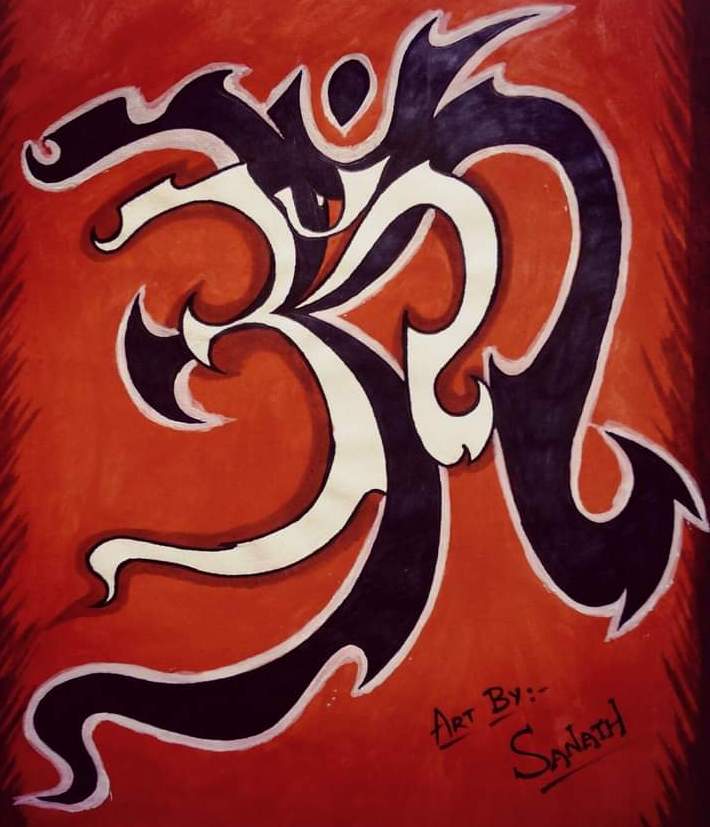 ॐ
ART BY:-
SANATH